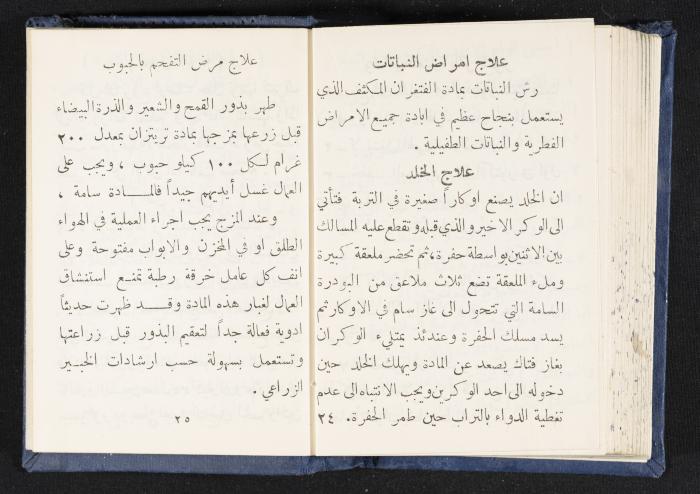 علاج امراض النباتات
رش النباتات بمادة الفتغران المكثف الذي
يستعمل بنجاح عظيم في ابادة جميع الامراض
الفطرية والنباتات الطفيلية .
علاج الخلد
ان الخلد يصنع اوكاراً صغيرة في التربة فتأتي
الى الوكر الاخير والذي قبله وتقطع عليه المسالك
بين الاثنين بواسطة حفرة، ثم تحضر ملعقة كبيرة
وملء الملعقة تضع ثلاث ملاعق من البودرة
السامة التي تتحول الى غاز سام في الاوكار ثم
يسد مسلك الحفرة وعندئذ يمتليء الوكران
بغاز فتاك يصعد عن المادة ويهلك الخلد حين
دخوله الى احد الوكرين ويجب الانتباه الى عدم
تغطية الدواء بالتراب حين طمر الحفرة. ٢٤
علاج مرض التفحم بالحبوب
طهر بذور القمح والشعير والذرة البيضاء
قبل زرعها بمزجها بمادة تريتزان بمعدل ٢٠٠
غرام لكل ١٠٠ كيلو حبوب ، ويجب على
العمال غسل أيديهم جيداً فالمادة سامة ،
وعند المزج يجب اجراء العملية في الهواء
الطلق او في المخزن والابواب مفتوحة وعلى
انف كل عامل خرقة رطبة تمنع استنشاق
العمال لغبار هذه المادة وقد ظهرت حديثاً
ادوية فعالة جداً لتعقيم البذور قبل زراعتها
وتستعمل بسهولة حسب ارشادات الخبير
الزراعي .
٢٥